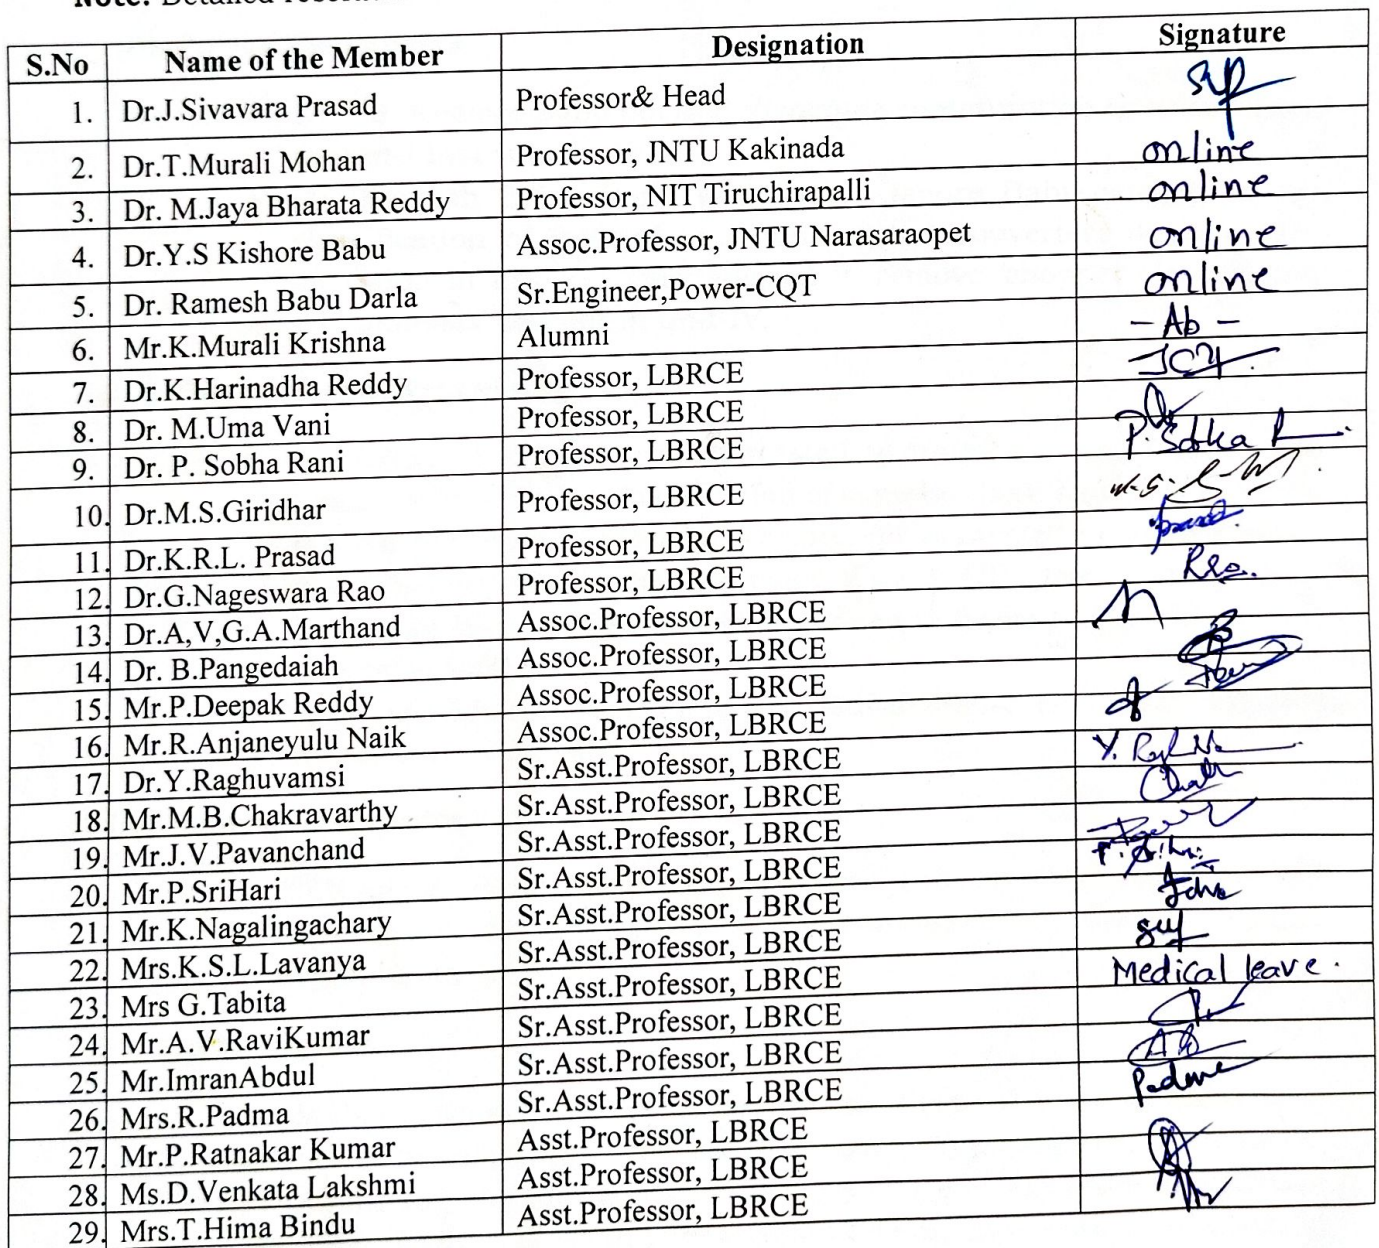 Note:
S.No Name of the Member Designation Signature
1. Dr.J.Sivavara Prasad Professor& Head
2. Dr.T.Murali Mohan Professor, JNTU Kakinada online
3. Dr. M.Jaya Bharata Reddy Professor, NIT Tiruchirapalli online
4. Dr.Y.S Kishore Babu Assoc.Professor, JNTU Narasaraopet online
5. Dr. Ramesh Babu Darla Sr.Engineer,Power-CQT online
6. Mr.K.Murali Krishna Alumni - Ab -
7. Dr.K.Harinadha Reddy Professor, LBRCE
8. Dr. M.Uma Vani Professor, LBRCE
9. Dr. P. Sobha Rani Professor, LBRCE P. Sobha
10. Dr.M.S.Giridhar Professor, LBRCE
11. Dr.K.R.L. Prasad Professor, LBRCE
12. Dr.G.Nageswara Rao Professor, LBRCE
13. Dr.A,V,G.A.Marthand Assoc.Professor, LBRCE
14. Dr. B.Pangedaiah Assoc.Professor, LBRCE
15. Mr.P.Deepak Reddy Assoc.Professor, LBRCE
16. Mr.R.Anjaneyulu Naik Assoc.Professor, LBRCE
17. Dr.Y.Raghuvamsi Sr.Asst.Professor, LBRCE
18. Mr.M.B.Chakravarthy Sr.Asst.Professor, LBRCE
19. Mr.J.V.Pavanchand Sr.Asst.Professor, LBRCE
20. Mr.P.SriHari Sr.Asst.Professor, LBRCE
21. Mr.K.Nagalingachary Sr.Asst.Professor, LBRCE
22. Mrs.K.S.L.Lavanya Sr.Asst.Professor, LBRCE
23. Mrs G.Tabita Sr.Asst.Professor, LBRCE Medical leave.
24. Mr.A.V.RaviKumar Sr.Asst.Professor, LBRCE
25. Mr.ImranAbdul Sr.Asst.Professor, LBRCE
26. Mrs.R.Padma Sr.Asst.Professor, LBRCE Padma
27. Mr.P.Ratnakar Kumar Asst.Professor, LBRCE
28. Ms.D.Venkata Lakshmi Asst.Professor, LBRCE
29. Mrs.T.Hima Bindu Asst.Professor, LBRCE